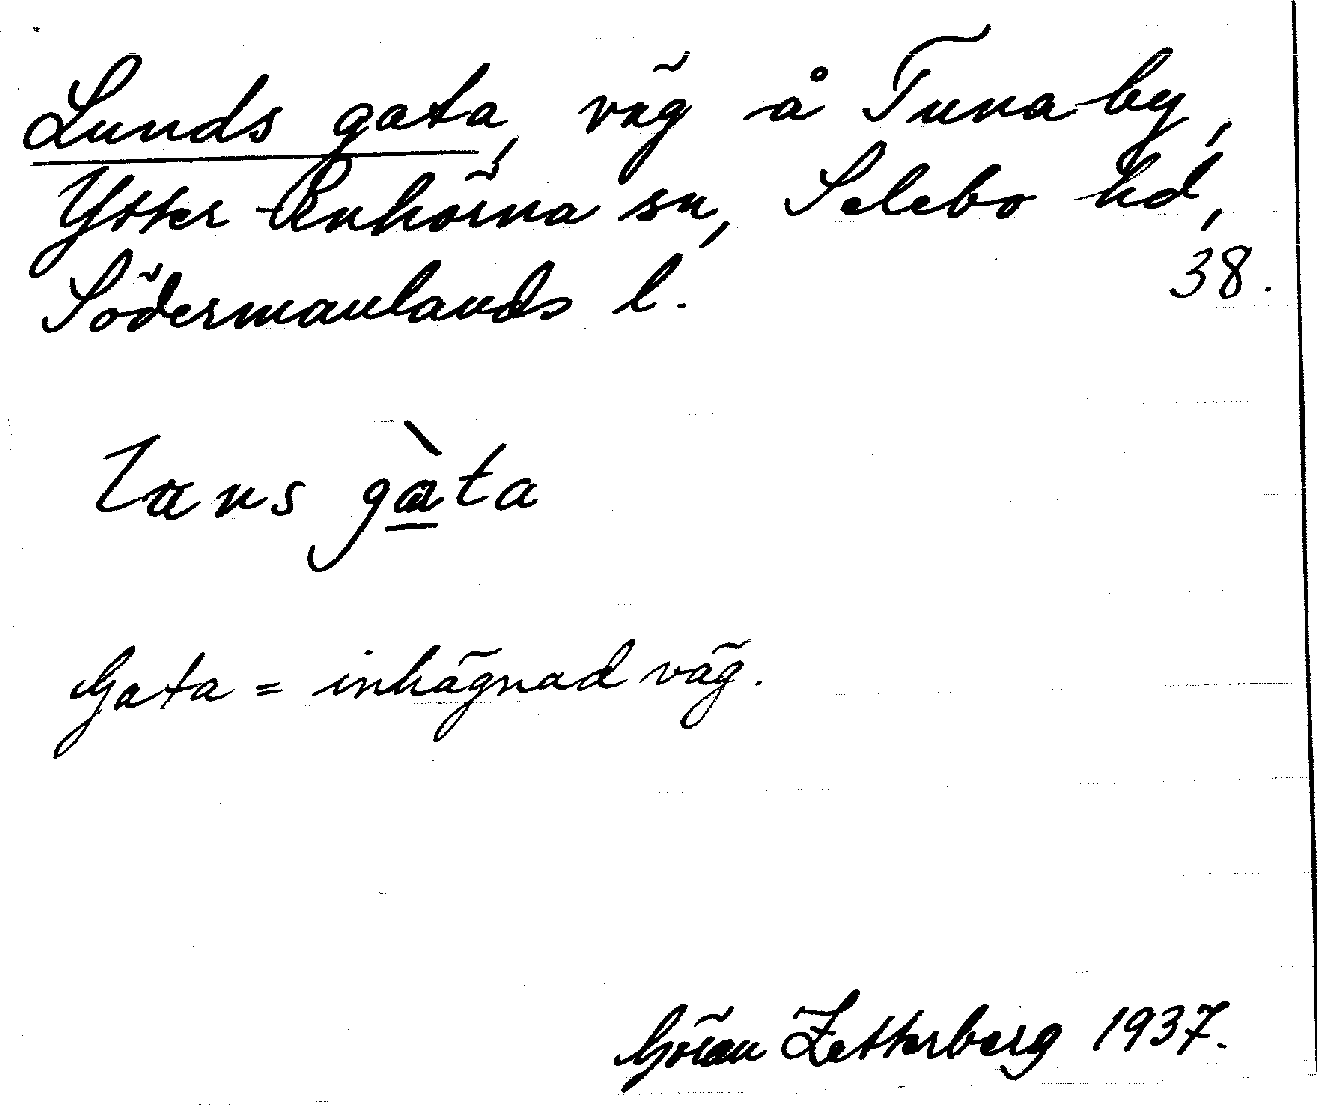 Lunds gata, väg å Tuna by,
Ytter Enhörna sn, Selebo hd,
Södermanlands l. 38.
lans gàta
Gata = inhägnad väg.
Göran Zetterberg 1937.